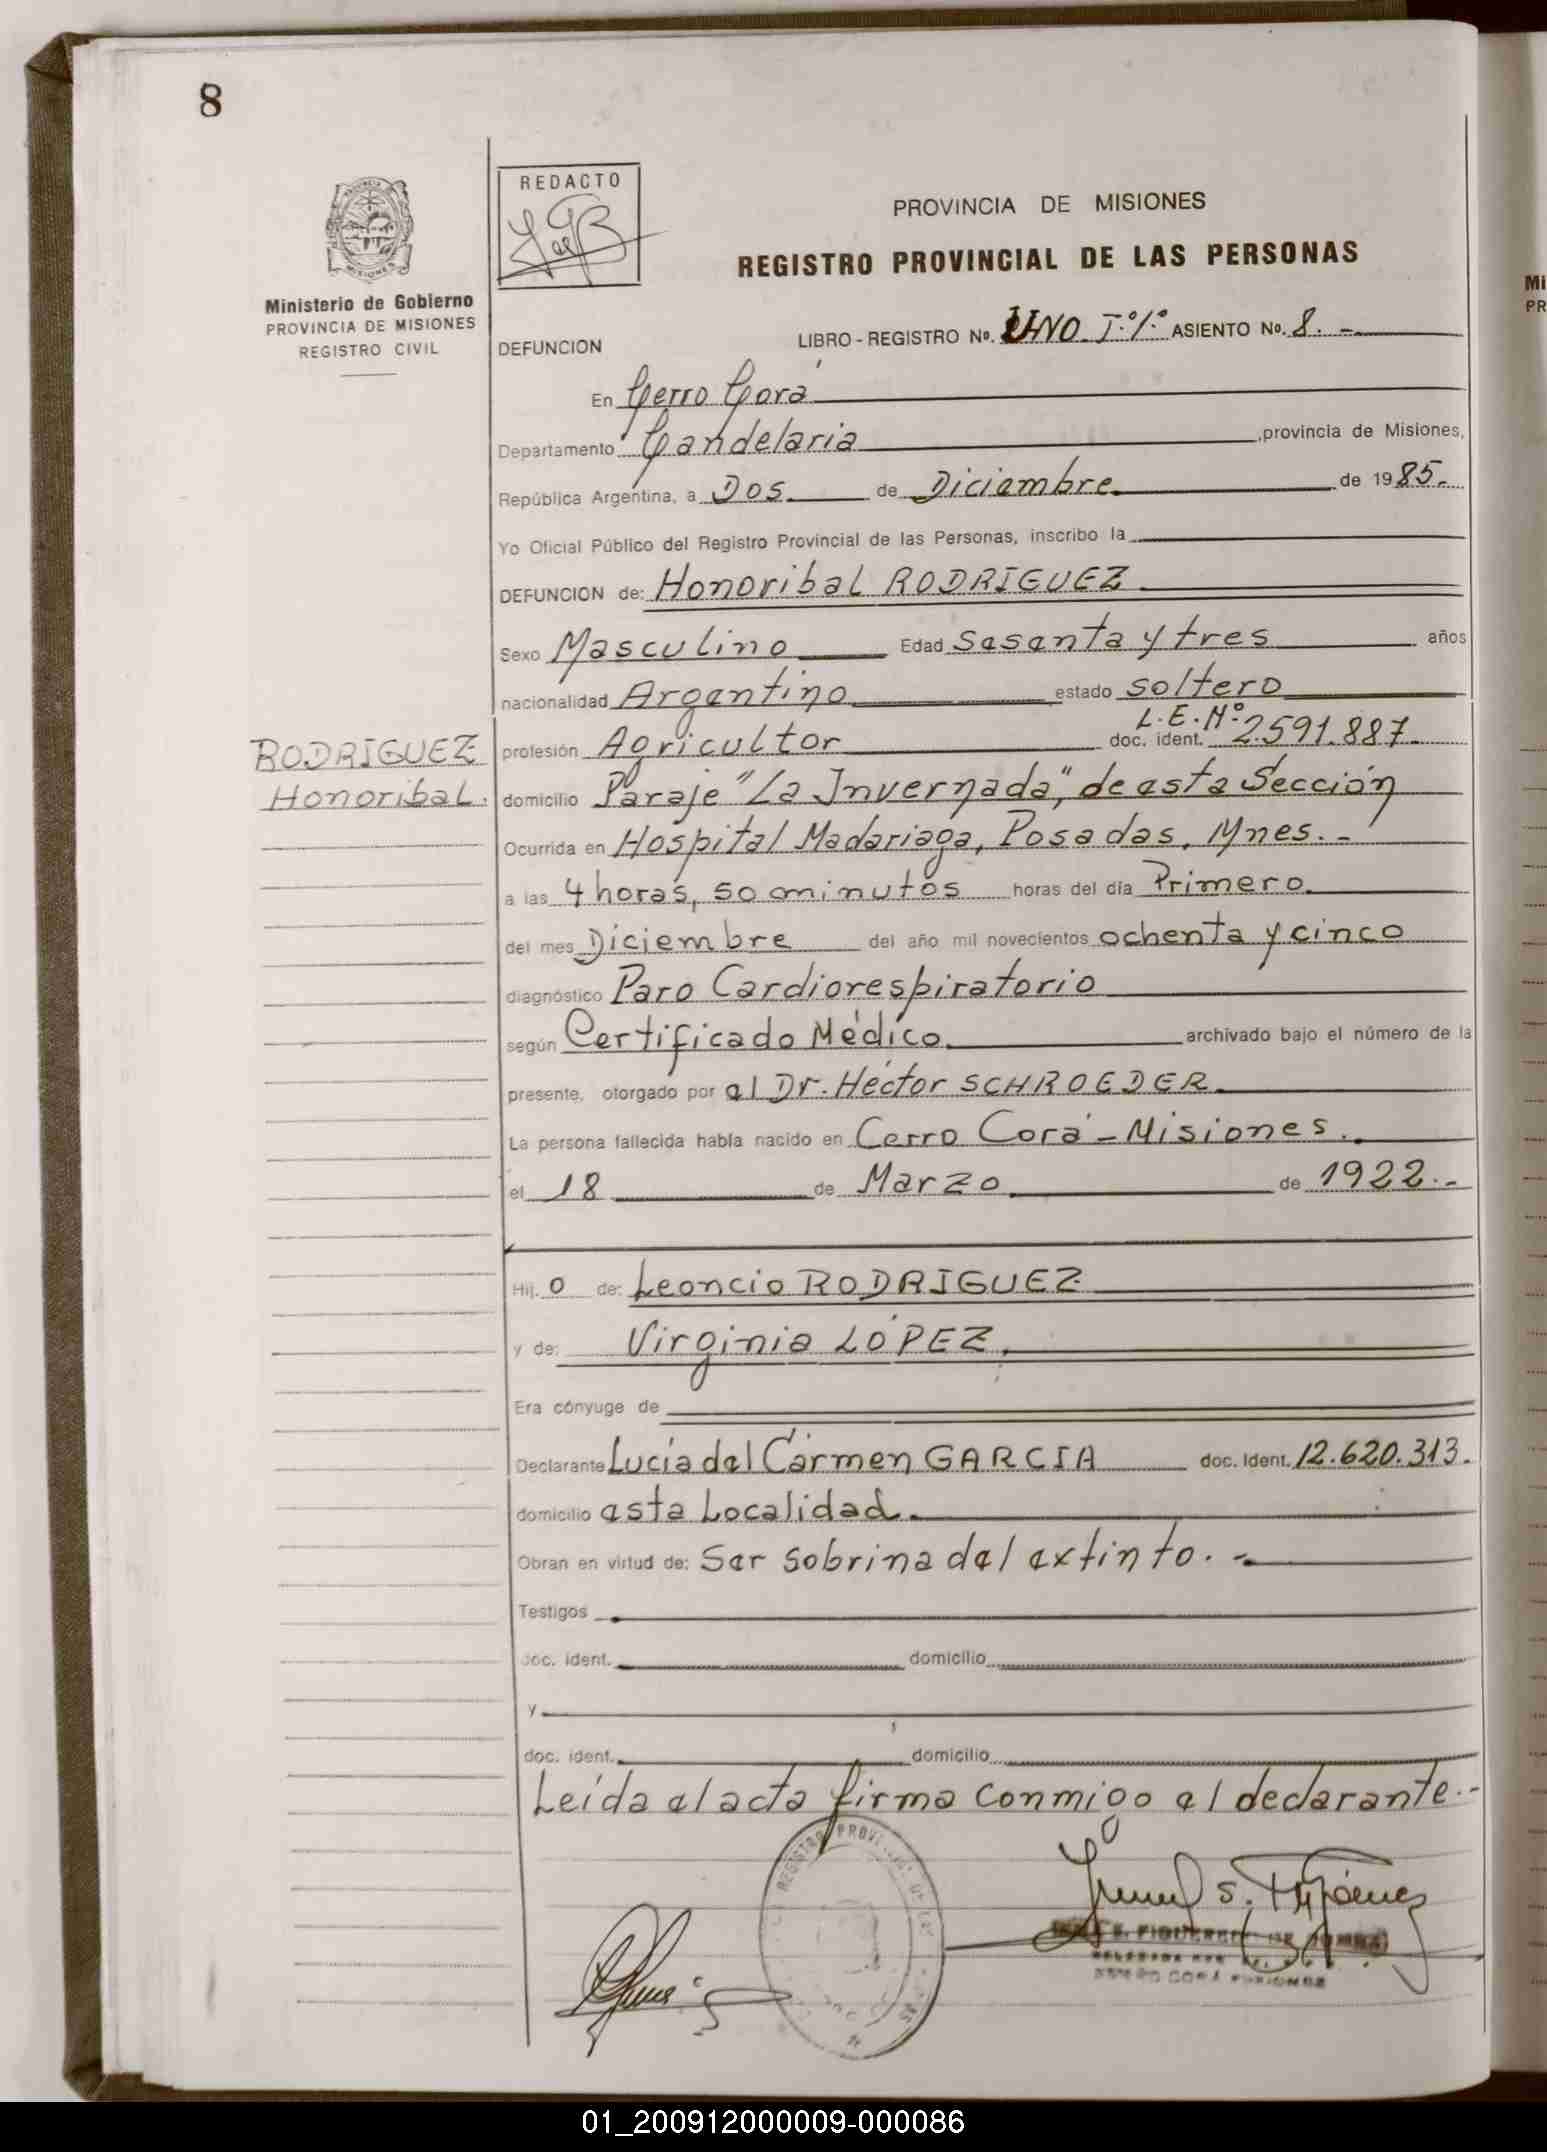 8
REDACTO
PROVINCIA DE MISIONES
REGISTRO PROVINCIAL DE LAS PERSONAS
Ministerio de Gobierno
PROVINCIA DE MISIONES
REGISTRO CIVIL
DEFUNCION LIBRO - REGISTRO No. UNO T.º 1.º ASIENTO No. 8. -
En Cerro Corá
Departamento Candelaria, provincia de Misiones,
República Argentina, a Dos de Diciembre de 1985.-
Yo Oficial Público del Registro Provincial de las Personas, inscribo la
DEFUNCION de: Honoribal RODRIGUEZ
Sexo Masculino Edad Sesenta y tres años
nacionalidad Argentino estado soltero
RODRIGUEZ
Honoribal.
profesión Agricultor doc. ident. L.E.Nº 2.591.887.
domicilio Paraje "La Invernada", de esta Sección
Ocurrida en Hospital Madariaga, Posadas, Mnes.-
a las 4 horas, 50 minutos horas del día Primero
del mes Diciembre del año mil novecientos ochenta y cinco
diagnóstico Paro Cardiorespiratorio
según Certificado Médico archivado bajo el número de la
presente, otorgado por el Dr. Héctor SCHROEDER
La persona fallecida había nacido en Cerro Corá - Misiones.
el 18 de Marzo de 1922.-
Hij o de: Leoncio RODRIGUEZ
y de: Virginia LÓPEZ.
Era cónyuge de
Declarante Lucía del Cármen GARCIA doc. Ident. 12.620.313.
domicilio esta Localidad.
Obran en virtud de: Ser sobrina del extinto. -
Testigos
doc. ident. domicilio
y
doc. ident. domicilio
Leída el acta firma conmigo el declarante.-
REGISTRO
01_200912000009-000086